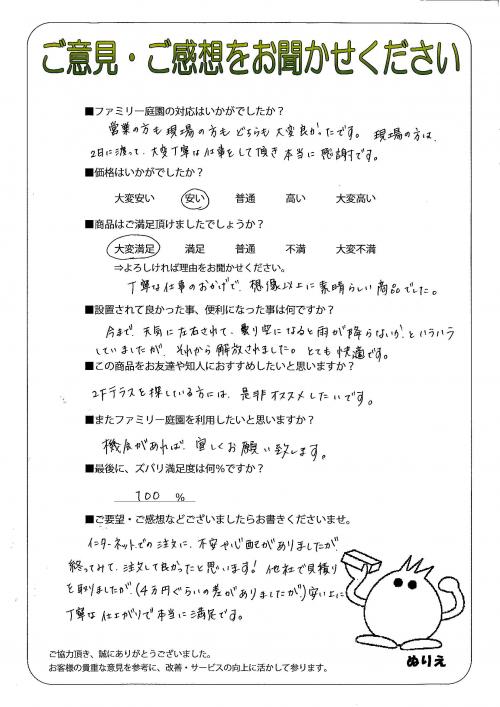 ご意見・ご感想をお聞かせください
■ファミリー庭園の対応はいかがでしたか？
営業の方も現場の方もどちらも大変良かったです。現場の方は、
2日に渡って、大変丁寧な仕事をして頂き本当に感謝です。
■価格はいかがでしたか？
大変安い 安い 普通 高い 大変高い
■商品はご満足頂けましたでしょうか？
大変満足 満足 普通 不満 大変不満
⇒よろしければ理由をお聞かせください。
丁寧な仕事のおかげで、想像以上に素晴らしい商品でした。
■設置されて良かった事、便利になった事は何ですか？
今まで、天気に左右されて、曇り空になると雨が降らないか、とハラハラ
していましたが、それから解放されました。とても快適です。
■この商品をお友達や知人におすすめしたいと思いますか？
2Fテラスを探している方には、是非オススメしたいです。
■またファミリー庭園を利用したいと思いますか？
機会があれば、宜しくお願い致します。
■最後に、ズバリ満足度は何%ですか？
100 %
■ご要望・ご感想などございましたらお書きくださいませ。
インターネットでの注文に、不安や心配がありましたが
終ってみて、注文して良かったと思います！他社で見積り
を取りましたが、(4万円ぐらいの差がありましたが)安い上に
丁寧な仕上がりで本当に満足です。
ぬりえ
ご協力頂き、誠にありがとうございました。
お客様の貴重な意見を参考に、改善・サービスの向上に活かして参ります。